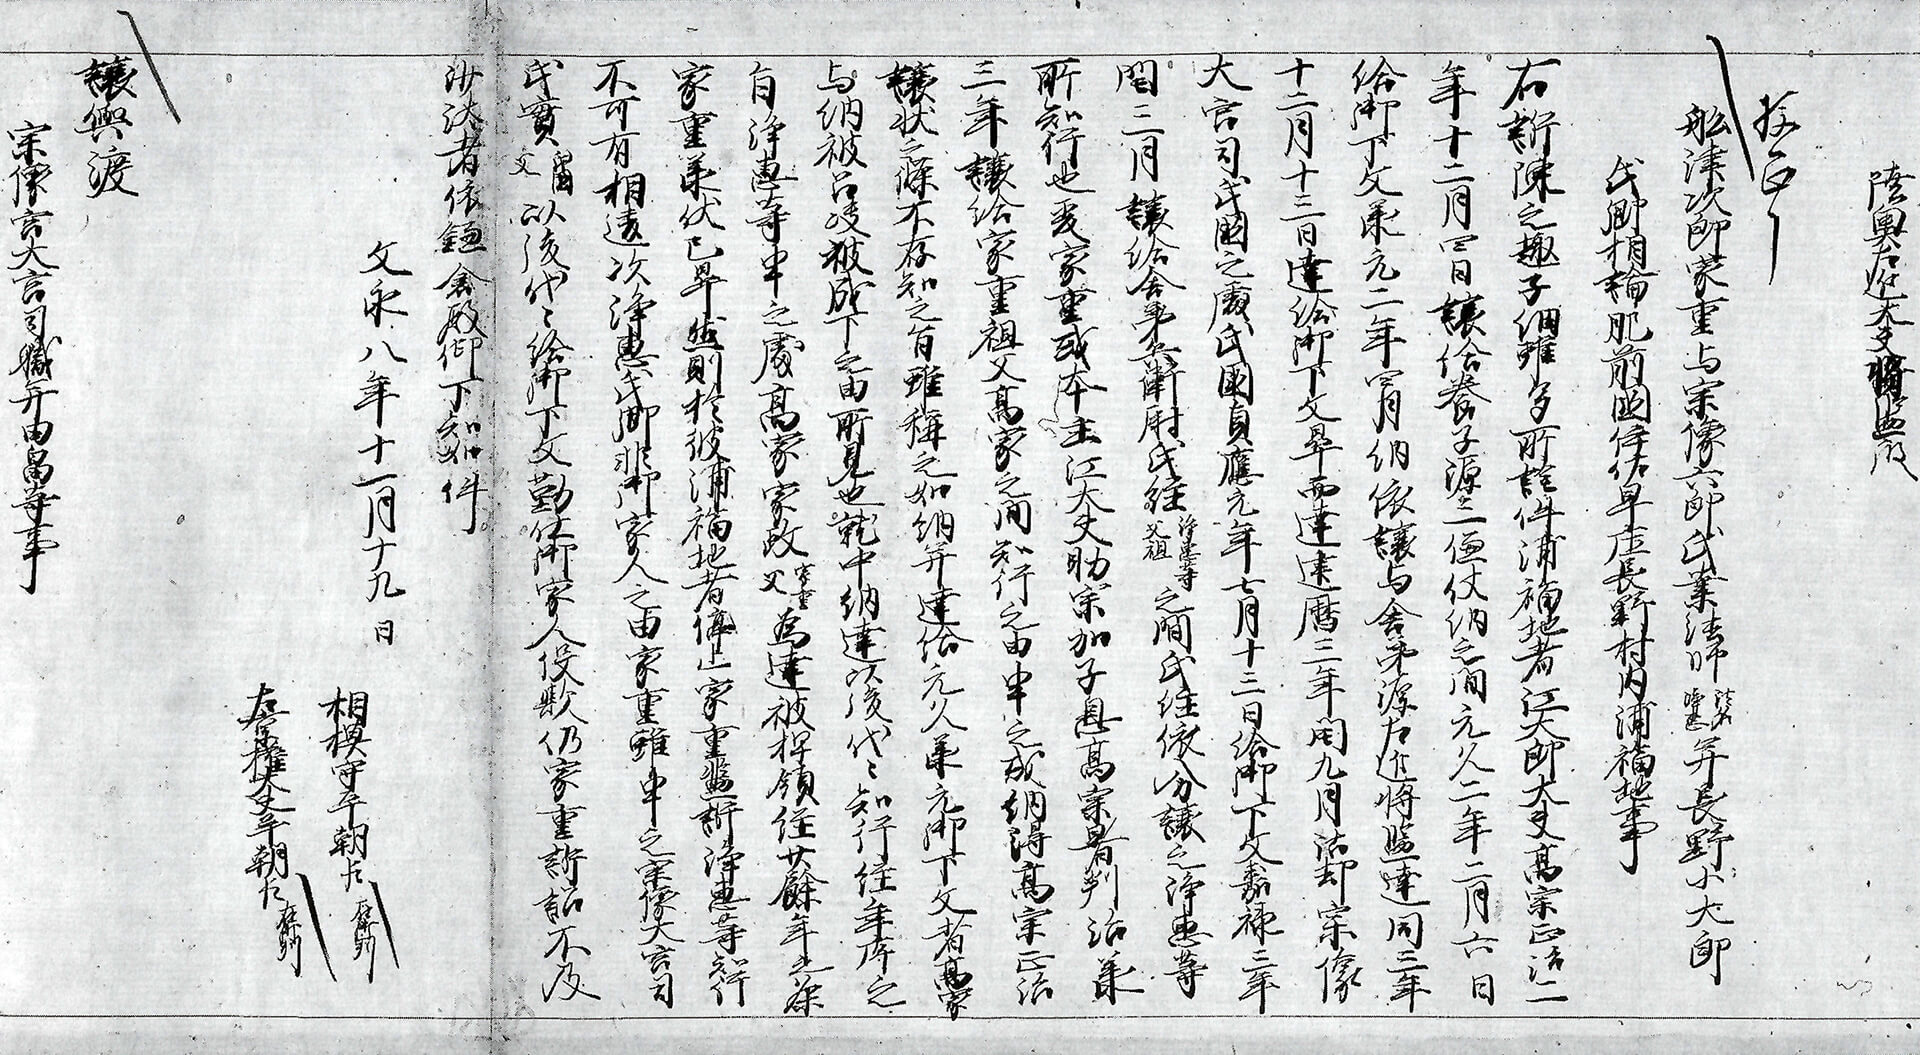 陸奥左近大夫将監殿
按正
舩津次郎家重与宗像六郎氏業法師法名浄恵并長野小太郎
氏郷相論肥前国伊佐早庄長野村内浦福地事
右訴陳之趣子細雖多所詮件浦福地者江大郎大夫高宗正治二
年十二月四日譲給養子源三傔仗納之間元久二年二月六日
給御下文承元二年四月納依譲与舎弟源左近将監達同三年
十二月十三日達給御下文畢而達建暦三年閏九月沽却宗像
大宮司氏国之處氏国貞應元年七月十三日給御下文嘉禄三年
閏三月譲給舎弟兵衛尉氏経浄恵等父祖之間氏経依分譲之浄恵等
所知行也爰家重或本主江大夫助宗加子息高宗署判治承
三年譲給家重祖父高家之間知行之由申之或納得高宗正治
譲状之條不存知之旨雖稱之如納并達給元久承元御下文者高家
与納被召决被成下之由所見也就中納達以後代々知行経年序之
旨浄恵等申之處高家家政家重父為達被押領経廿餘年之條
家重承伏已畢然則於彼浦福地者停止家重濫訴浄恵等知行
不可有相違次浄恵氏郷非御家人之由家重雖申之宗像大宮司
氏實氏国父以後代々給御下文勤仕御家人役歟仍家重訴詔不及
沙汰者依鎌倉殿仰下知如件
文永八年十一月十九日
相模守平朝臣在御判
左京権大夫平朝臣在御判
譲與渡
宗像宮大宮司職并由畠等事